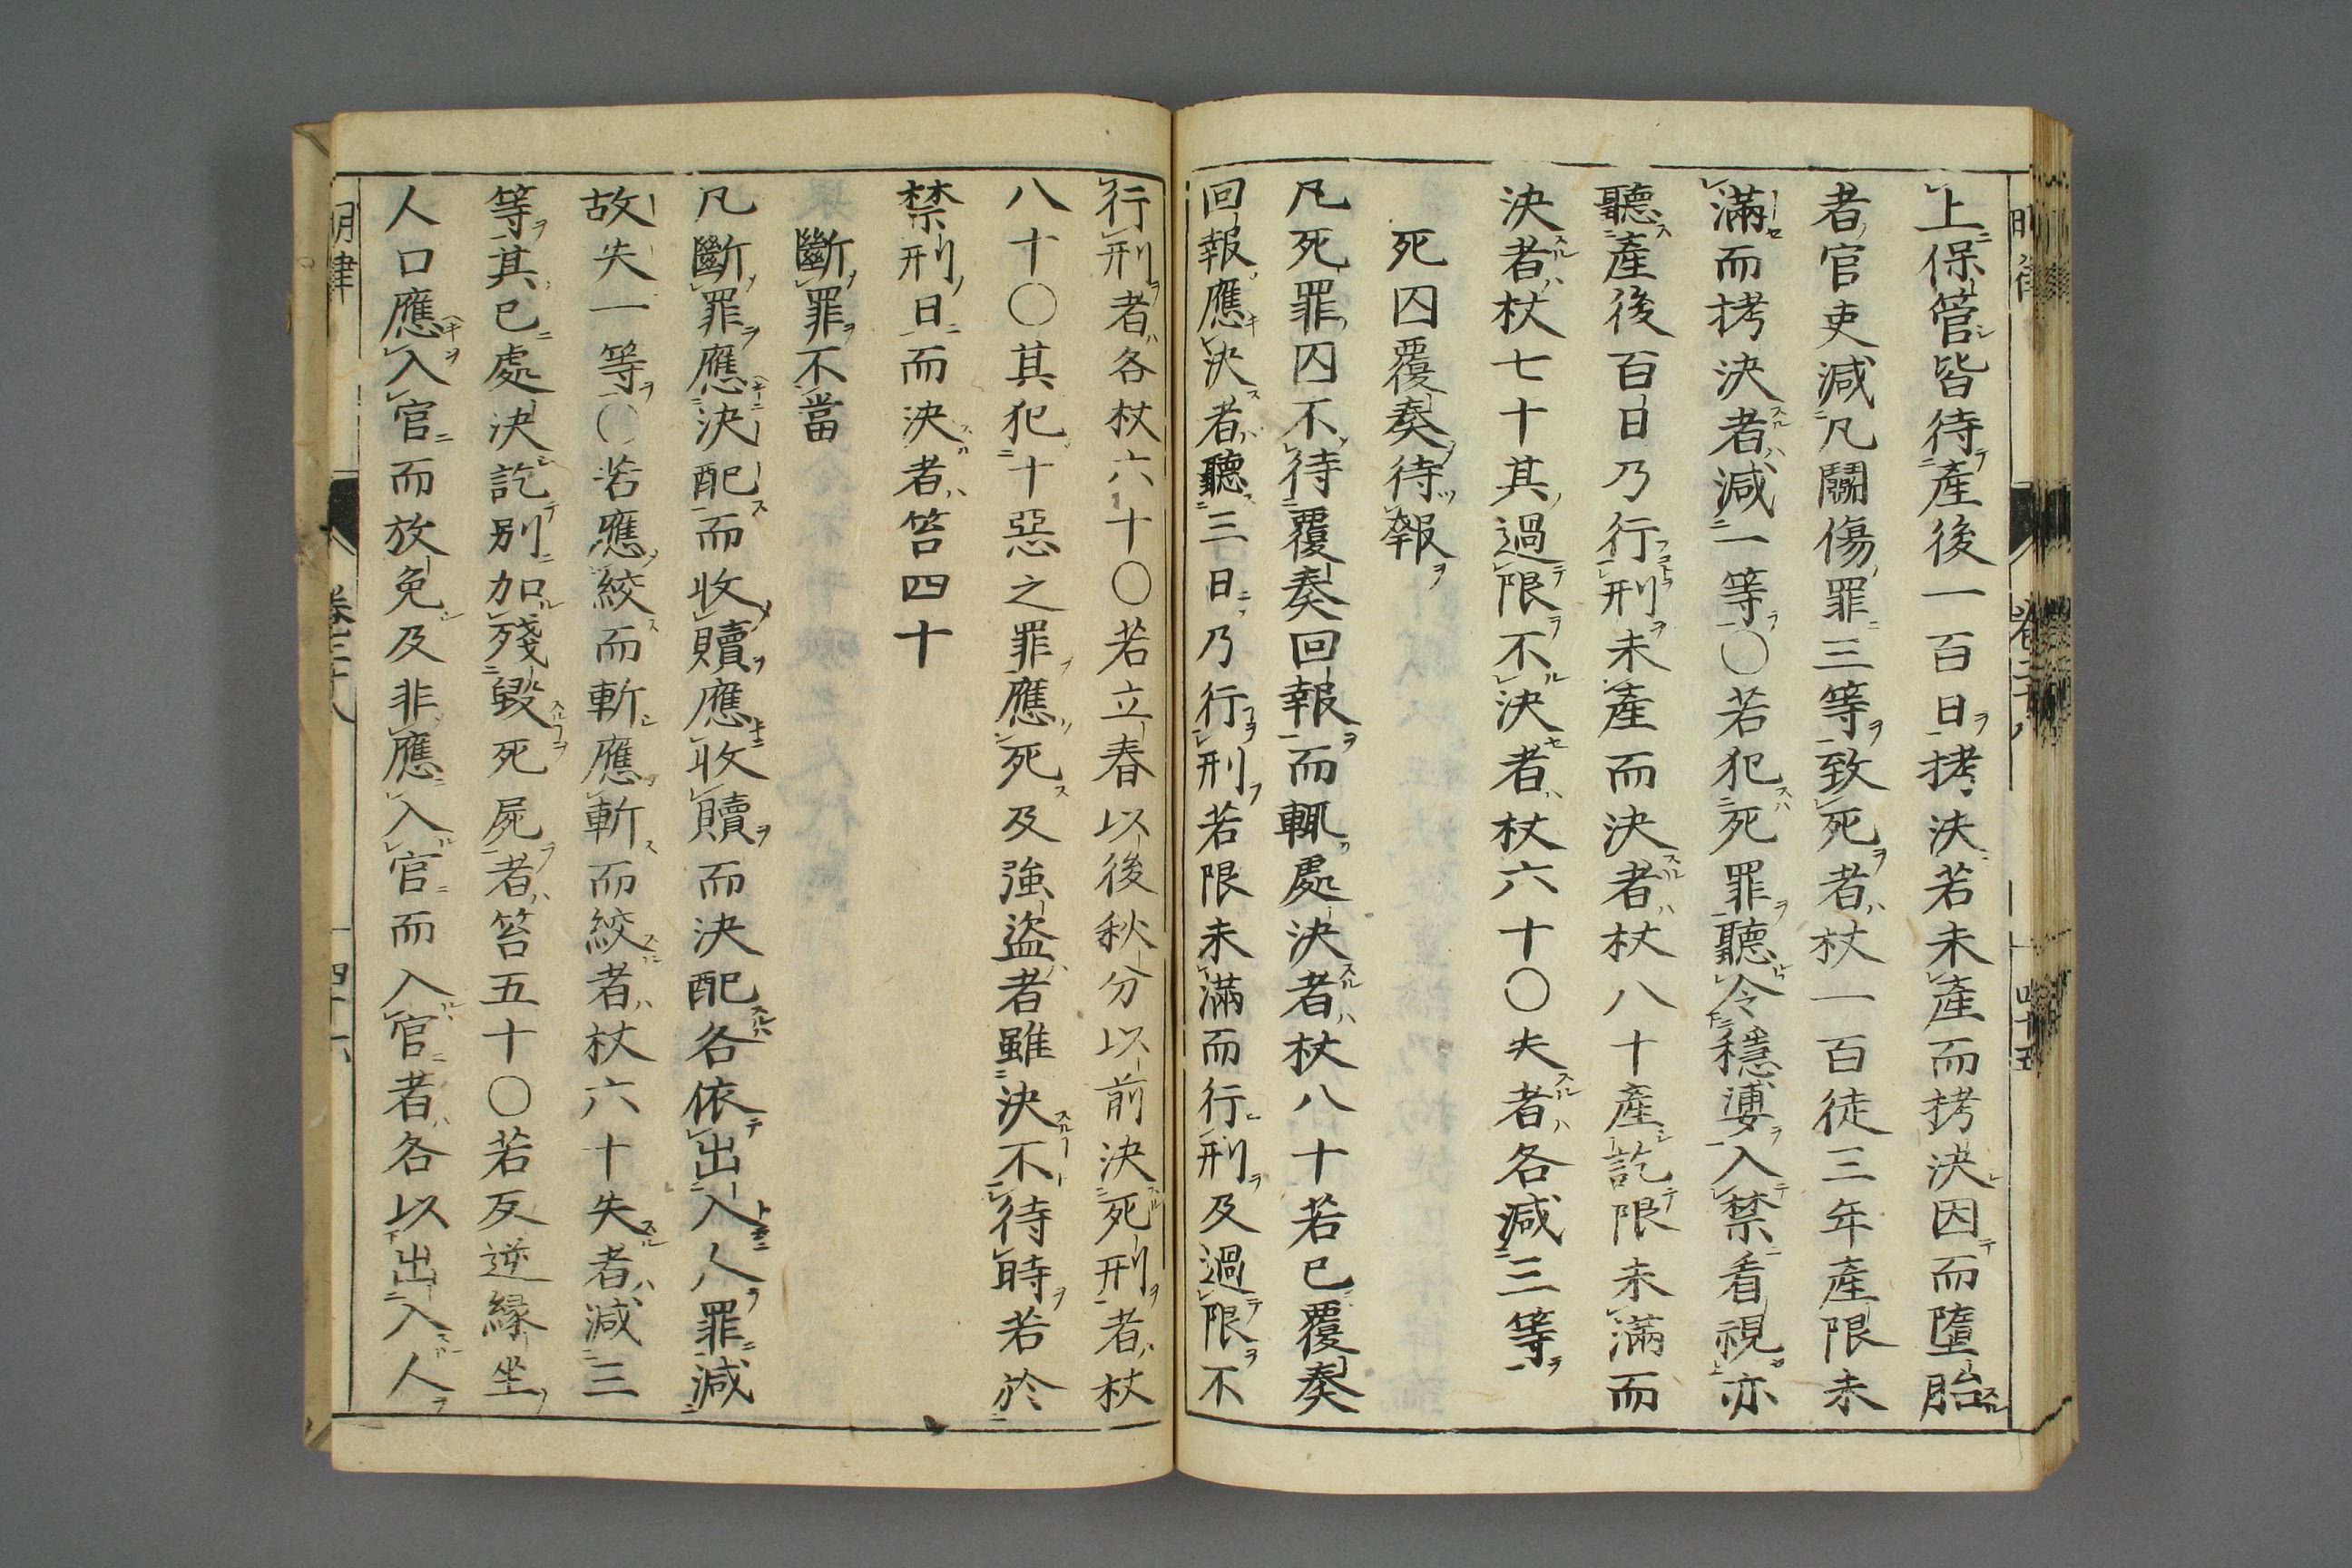 上保管皆待產後一百日拷決若未產而拷決因而墮胎
者官吏減凡鬬傷罪三等致死者杖一百徒三年產限未
滿而拷決者減一等○若犯死罪聽令穩婆入禁看視亦
聽產後百日乃行刑未產而決者杖八十產訖限未滿而
決者杖七十其過限不決者杖六十○失者各減三等
死囚覆奏待報
凡死罪囚不待覆奏回報而輒處決者杖八十若已覆奏
回報應決者聽三日乃行刑若限未滿而行刑及過限不
行刑者各杖六十○若立春以後秋分以前決死刑者杖
八十○其犯十惡之罪應死及強盜者雖決不待時若於
禁刑日而決者笞四十
斷罪不當
凡斷罪應決配而收贖應收贖而決配各依出入人罪減
故失一等○若應絞而斬應斬而絞者杖六十失者減三
等其已處決訖別加殘毀死屍者笞五十○若反逆緣坐
人口應入官而放免及非應入官而入官者各以出入人
明律 卷二十八 四十六